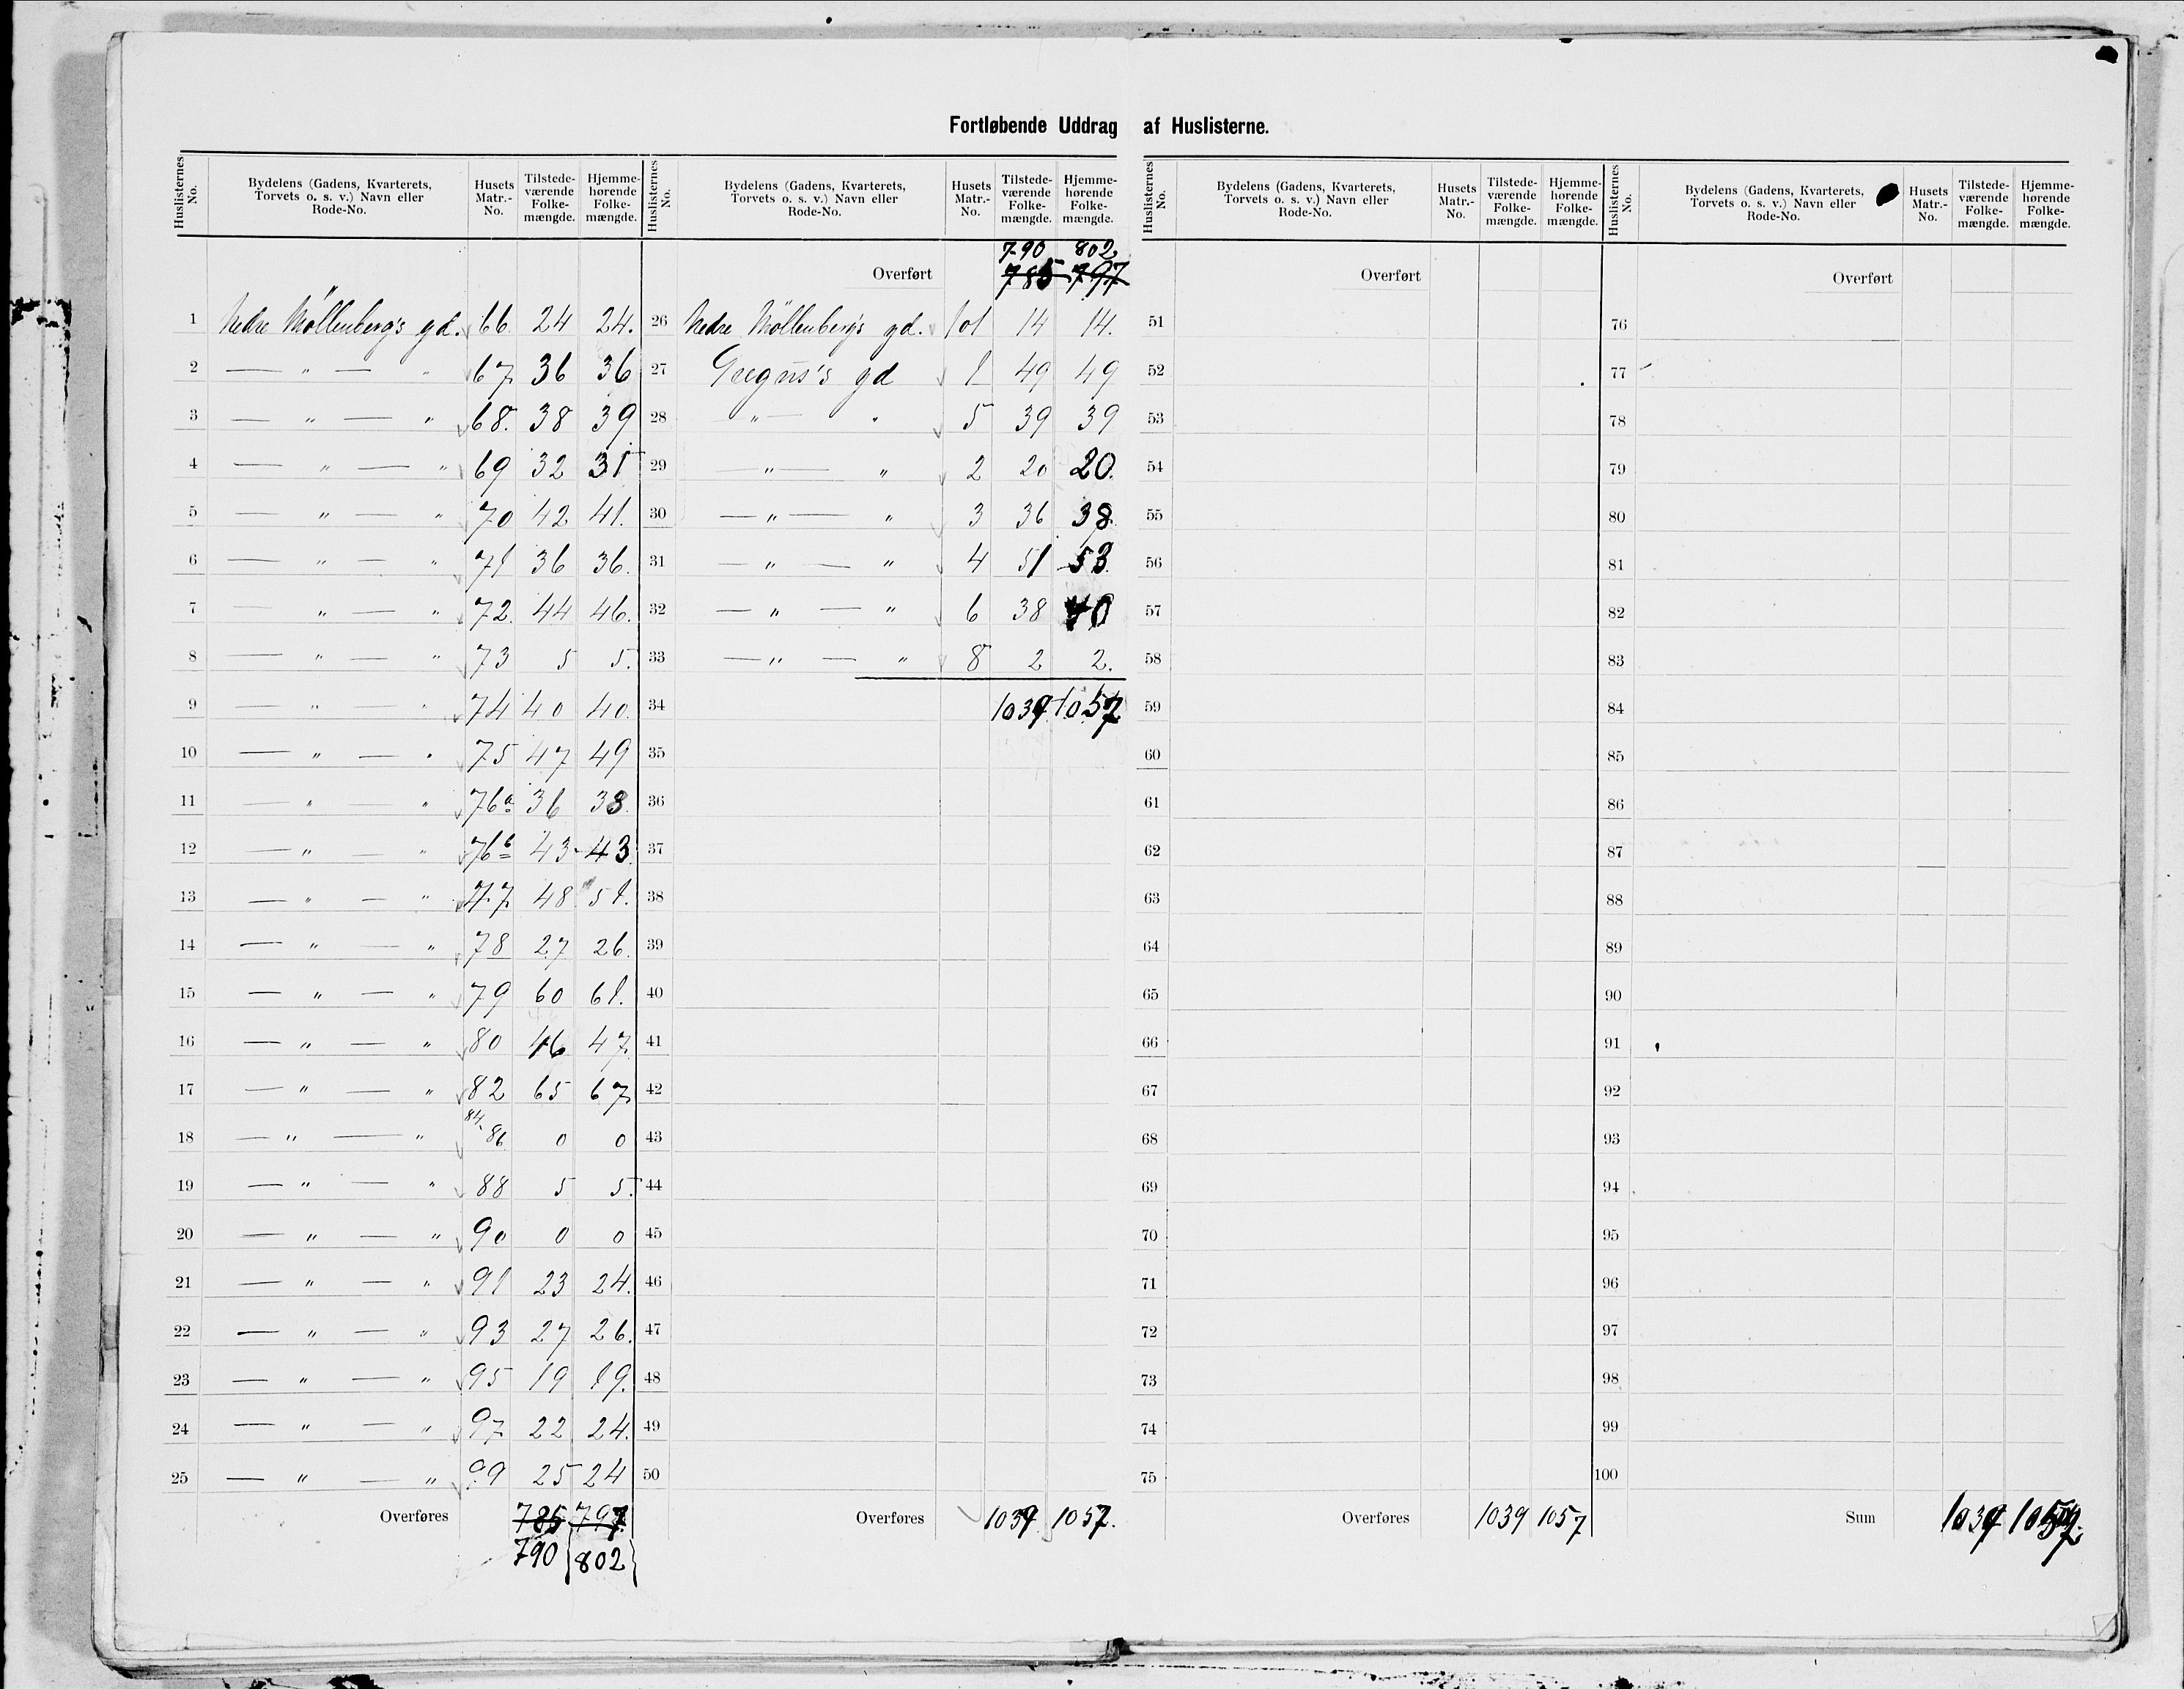 Fortløbende Uddrag af Huslisterne.
Huslisternes No. Bydelens (Gadens, Kvarterets, Torvets o. s. v.) Navn eller Rode-No. Husets Matr.-No. Tilstedeværende Folkemængde. Hjemmehørende Folkemængde.
1 Nedre Möllenberg's gd. 66 24 24.
2 — " — " 67 36 36
3 — " — " 68. 38 39
4 — " — " 69 32 31
5 — " — " 70 42 41.
6 — " — " 71 36 36.
7 — " — " 72. 44 46.
8 — " — " 73 5 5.
9 — " — " 74 40 40.
10 — " — " 75 47 49
11 — " — " 76a 36 38.
12 — " — " 76b 43 43.
13 — " — " 77 48 51.
14 — " — " 78 27 26.
15 — " — " 79 60 61.
16 — " — " 80 46 47.
17 — " — " 82 65 67
18 — " — " 84-86 0 0
19 — " — " 88 5 5.
20 — " — " 90 0 0
21 — " — " 91 23 24.
22 — " — " 93 27 26.
23 — " — " 95 19 19.
24 — " — " 97 22 24.
25 — " — " 99 25 24
Overføres 785 797
790 802
Huslisternes No. Bydelens (Gadens, Kvarterets, Torvets o. s. v.) Navn eller Rode-No. Husets Matr.-No. Tilstedeværende Folkemængde. Hjemmehørende Folkemængde.
790 802
Overført 785 797
26 Nedre Möllenberg's gd. 101 14 14.
27 gd 1 49 49
28 " — " 5 39 39
29 — " — " 2 20 20.
30 — " — " 3 36 38.
31 — " — " 4 51 53.
32 — " — " 6 38 40
33 — " — " 8 2 2.
34 1039 1057
35
36
37
38
39
40
41
42
43
44
45
46
47
48
49
50
Overføres 1039 1057.
Huslisternes No. Bydelens (Gadens, Kvarterets, Torvets o. s. v.) Navn eller Rode-No. Husets Matr.-No. Tilstedeværende Folkemængde. Hjemmehørende Folkemængde.
Overført
51
52
53
54
55
56
57
58
59
60
61
62
63
64
65
66
67
68
69
70
71
72
73
74
75
Overføres 1039 1057
Huslisternes No. Bydelens (Gadens, Kvarterets, Torvets o. s. v.) Navn eller Rode-No. Husets Matr.-No. Tilstedeværende Folkemængde. Hjemmehørende Folkemængde.
Overført
76
77
78
79
80
81
82
83
84
85
86
87
88
89
90
91
92
93
94
95
96
97
98
99
100
Sum 1039 1057.